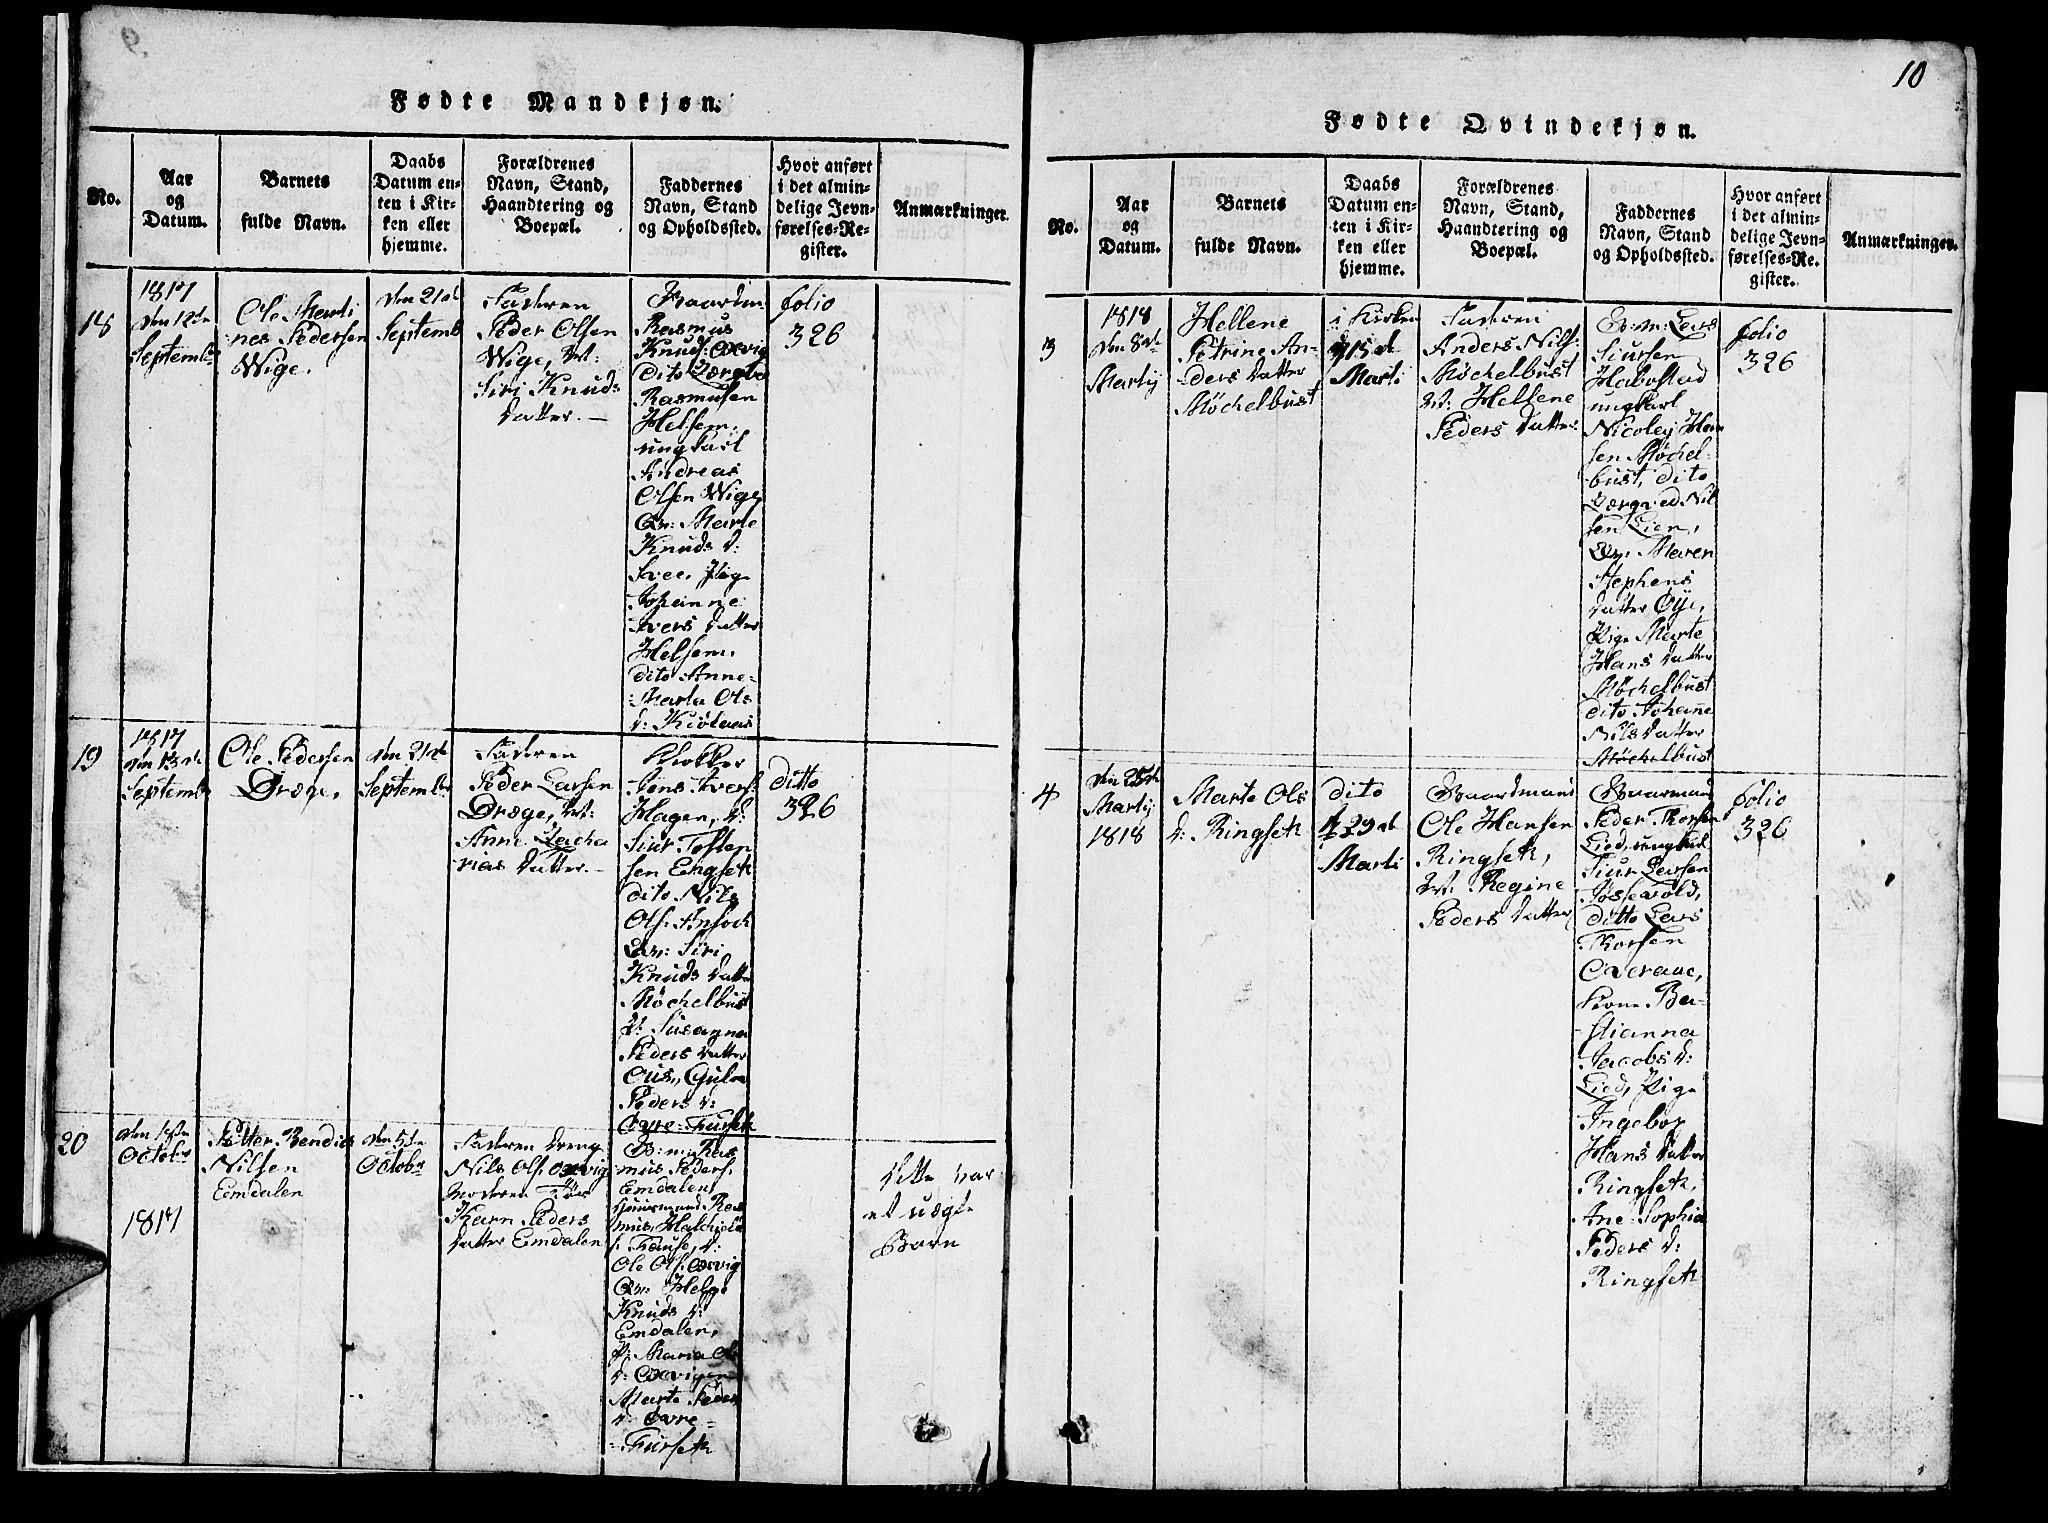 10
Fødte Mandkjøn.
No.
Aar
og
Datum.
Barnets
fulde Navn.
Daabs
Datum en-
ten i Kir-
ken eller
hjemme.
Forældrenes
Navn, Stand,
Haandtering og
Boepæl.
Faddernes
Navn, Stand
og Opholdssted.
Hvor anført
i det almin-
delige Jevn-
førelses-Re-
gister.
Anmærkninger.
18
1817
den 12te
Septembr
Ole
Pedersen
Wige.
den 21de
Septemb
Faderen
Peder Olsen
Wige, M:
Siri Knuds
datter.
Gaardm
Rasmus
Knuds:
dito
Rasmusen
Helsem,
ungkarl
Andreas
Olsen Wige,
Qv: Marte
Knuds d:
Svee, Pige
Johanne
Ivers datter
Helsem,
dito Anne
Marta Ols
d:
folio
326
19
1817
den 13de
Septemb
Ole Pedersen
Dræge,
den 21de
Septembr
Faderen
Peder Larsen
Dræge, M:
Anne Zacha
rias datter.
Klokker
Jens Ivers:
Hagen, d:
Siur Tosten
sen Engset
dito Nils
Ols:
Qv: Siri
Knuds datter
Møchelbust
P: Susanna
Peders datter
Peders d:
Øvre-Furset
ditto
326
20
den 1ste
Octobr
1817
Petter Bendic
Nilsen
Emdalen
den 5te
Octobr
Faderen dreng
Nils Ols:
Moderen
Karn Peders
datter Emdalen
G:m: Ras
mus Peders:
Emdalen,
Ras
mus
Ole Ols:
Qv: Helge
Knuds d:
Emdalen,
P: Maria Ols
d:
Marte Peders
d: Øvre
Furset
dette var
et uægte
Barn
Fødte Qvindekjøn.
No.
Aar
og
Datum.
Barnets
fulde Navn.
Daabs
Datum en-
ten i Kir-
ken eller
hjemme.
Forældrenes
Navn, Stand,
Haandtering og
Boepæl.
Faddernes
Navn, Stand
og Opholdssted.
Hvor anført
i det almin-
delige Jevn-
førelses-Re-
gister.
Anmærkninger.
3
1818
den 8de
Martij
Hellene
Petrine An-
ders datter
Møchelbust
i Kirken
15de
Marti
Faderen
Anders Nils:
Møchelbust
M: Hellene
Peders datter
G:m: Lars
Siursen
Habostad
ungkarl
Nicolej Han
sen Møchel-
bust, dito
Nil
sen Lien,
Qv: Maren
Stephens
datter Øye,
Pige Marte
Hans datter
Møchelbust
dito Johane
Nils datter
Møchelbust
folio
326
4
den 25de
Martij
1818
Marte Ols
d: Ringset
dito
29de
Marti
Gaardmand
Ole Hansen
Ringset,
M: Regine
Peders datter
Gaarmand
Peder Thorsen
Lied, ungkarl
Siur Larsen
ditto Lars
Thorsen
Overaae,
Kone Ba-
stianna
Jacobs d:
Lied, Pige
Ingebor
Hans datter
Ringset,
Ane Sophia
Peders d:
Ringset
folio
326